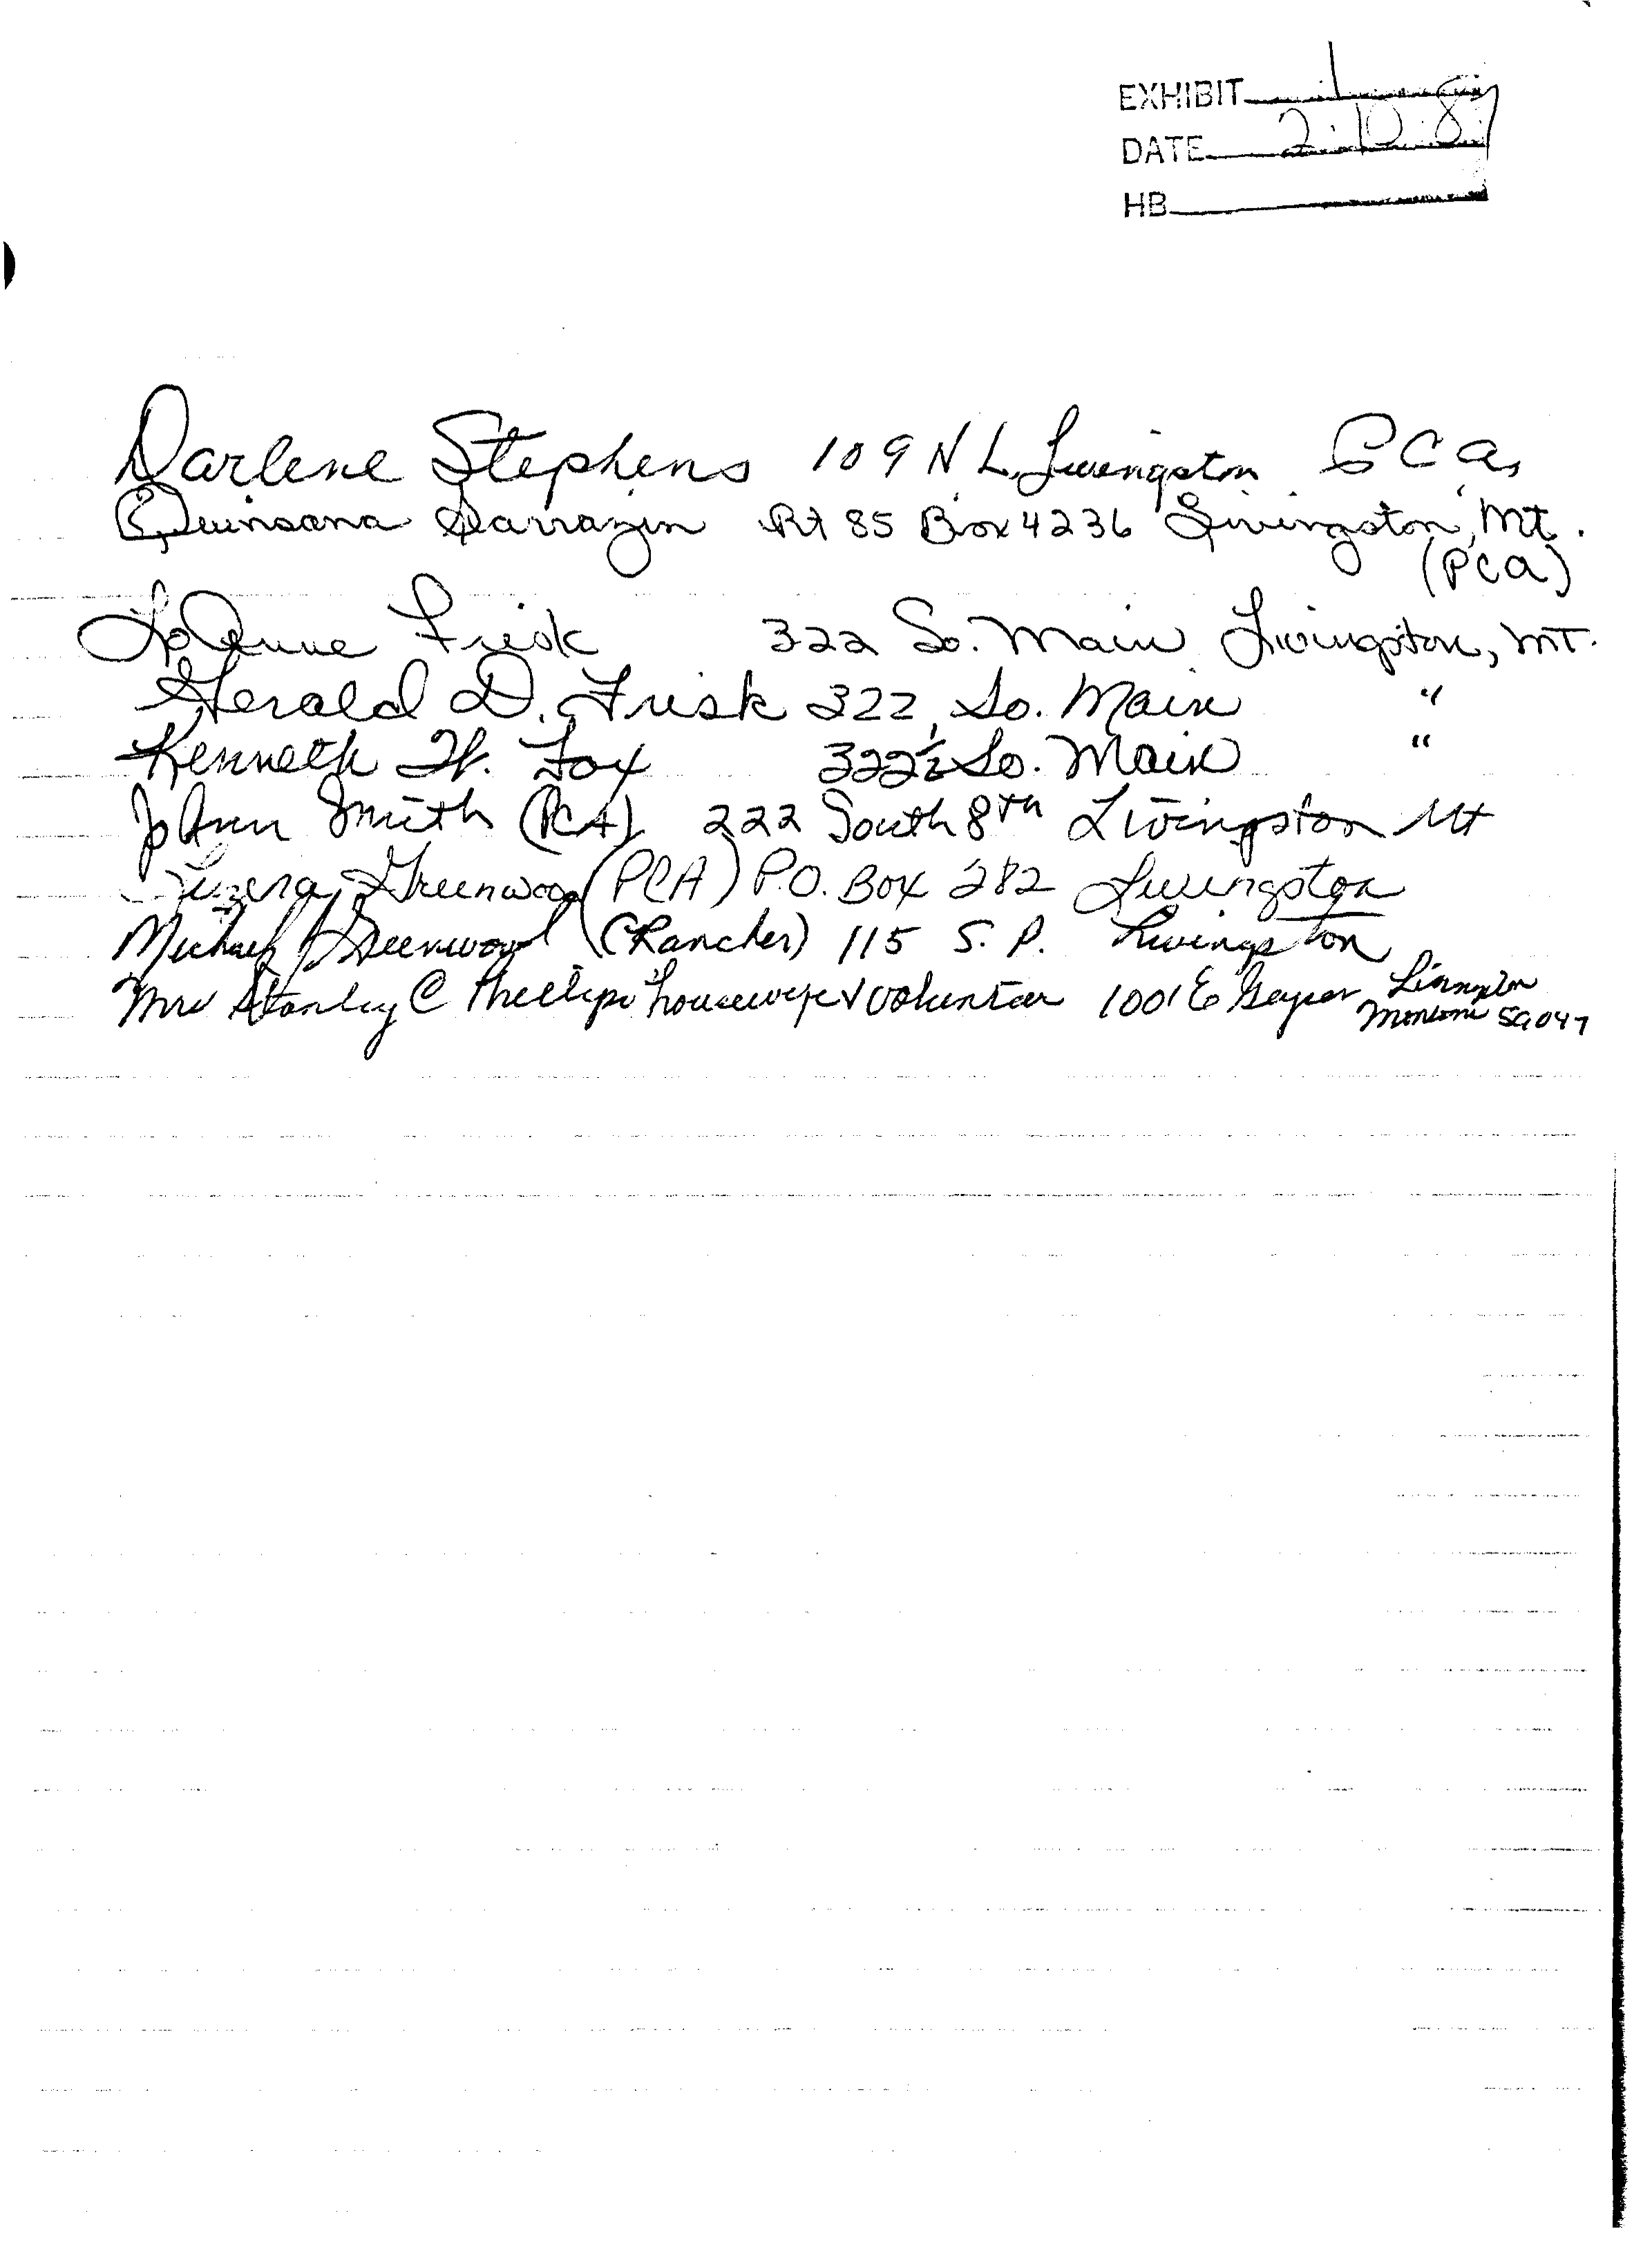 EXHIBIT 1
DATE 2.10.87
HB
Darlene Stephens 109 N L, Livingston P C A,
Quinsana Sarrazin Rt 85 Box 4236 Livingston, Mt.
(PCA)
LoAnne Frisk 322 So. Main Livingston, MT.
Gerald D. Frisk 322 So. Main "
Kenneth W. Fox 322½ So. Main "
JoAnn Smith (PCA) 222 South 8th Livingston Mt
Greenwood (PCA) P.O. Box 282 Livingston
Michael J Greenwood (Rancher) 115 S. P. Livingston
Mrs Stanley C Phillips housewife & volunteer 1001 E Geyser Livingston
Montana 59047